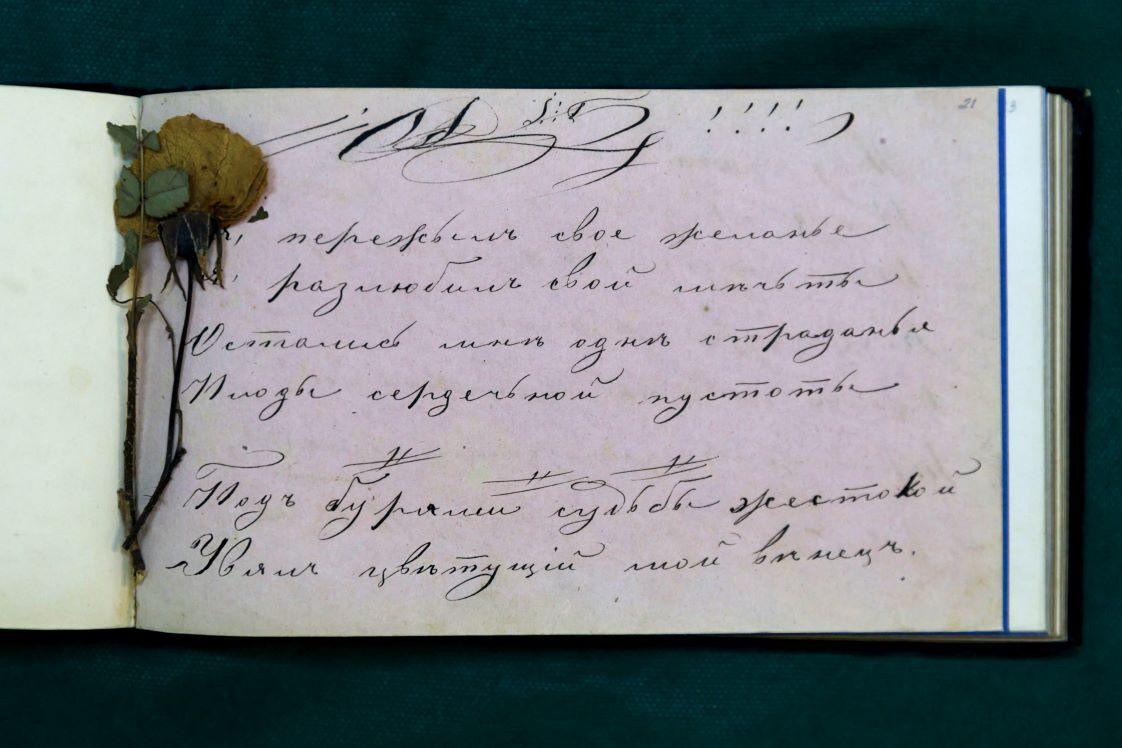 21
3
!!!!
пережылъ свое желанье
разлюбилъ свой мѣчьты
Осталисъ мнѣ однѣ страданья
Плоды сердечьной пустоты
Подъ бурями судьбы жестокой
Увялъ цвѣтущій мой вѣнецъ.